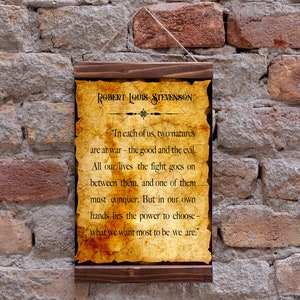 Robert Louis Stevenson
"In each of us, two natures
are at war – the good and the evil.
All our lives the fight goes on
between them, and one of them
must conquer. But in our own
hands lies the power to choose –
what we want most to be we are."